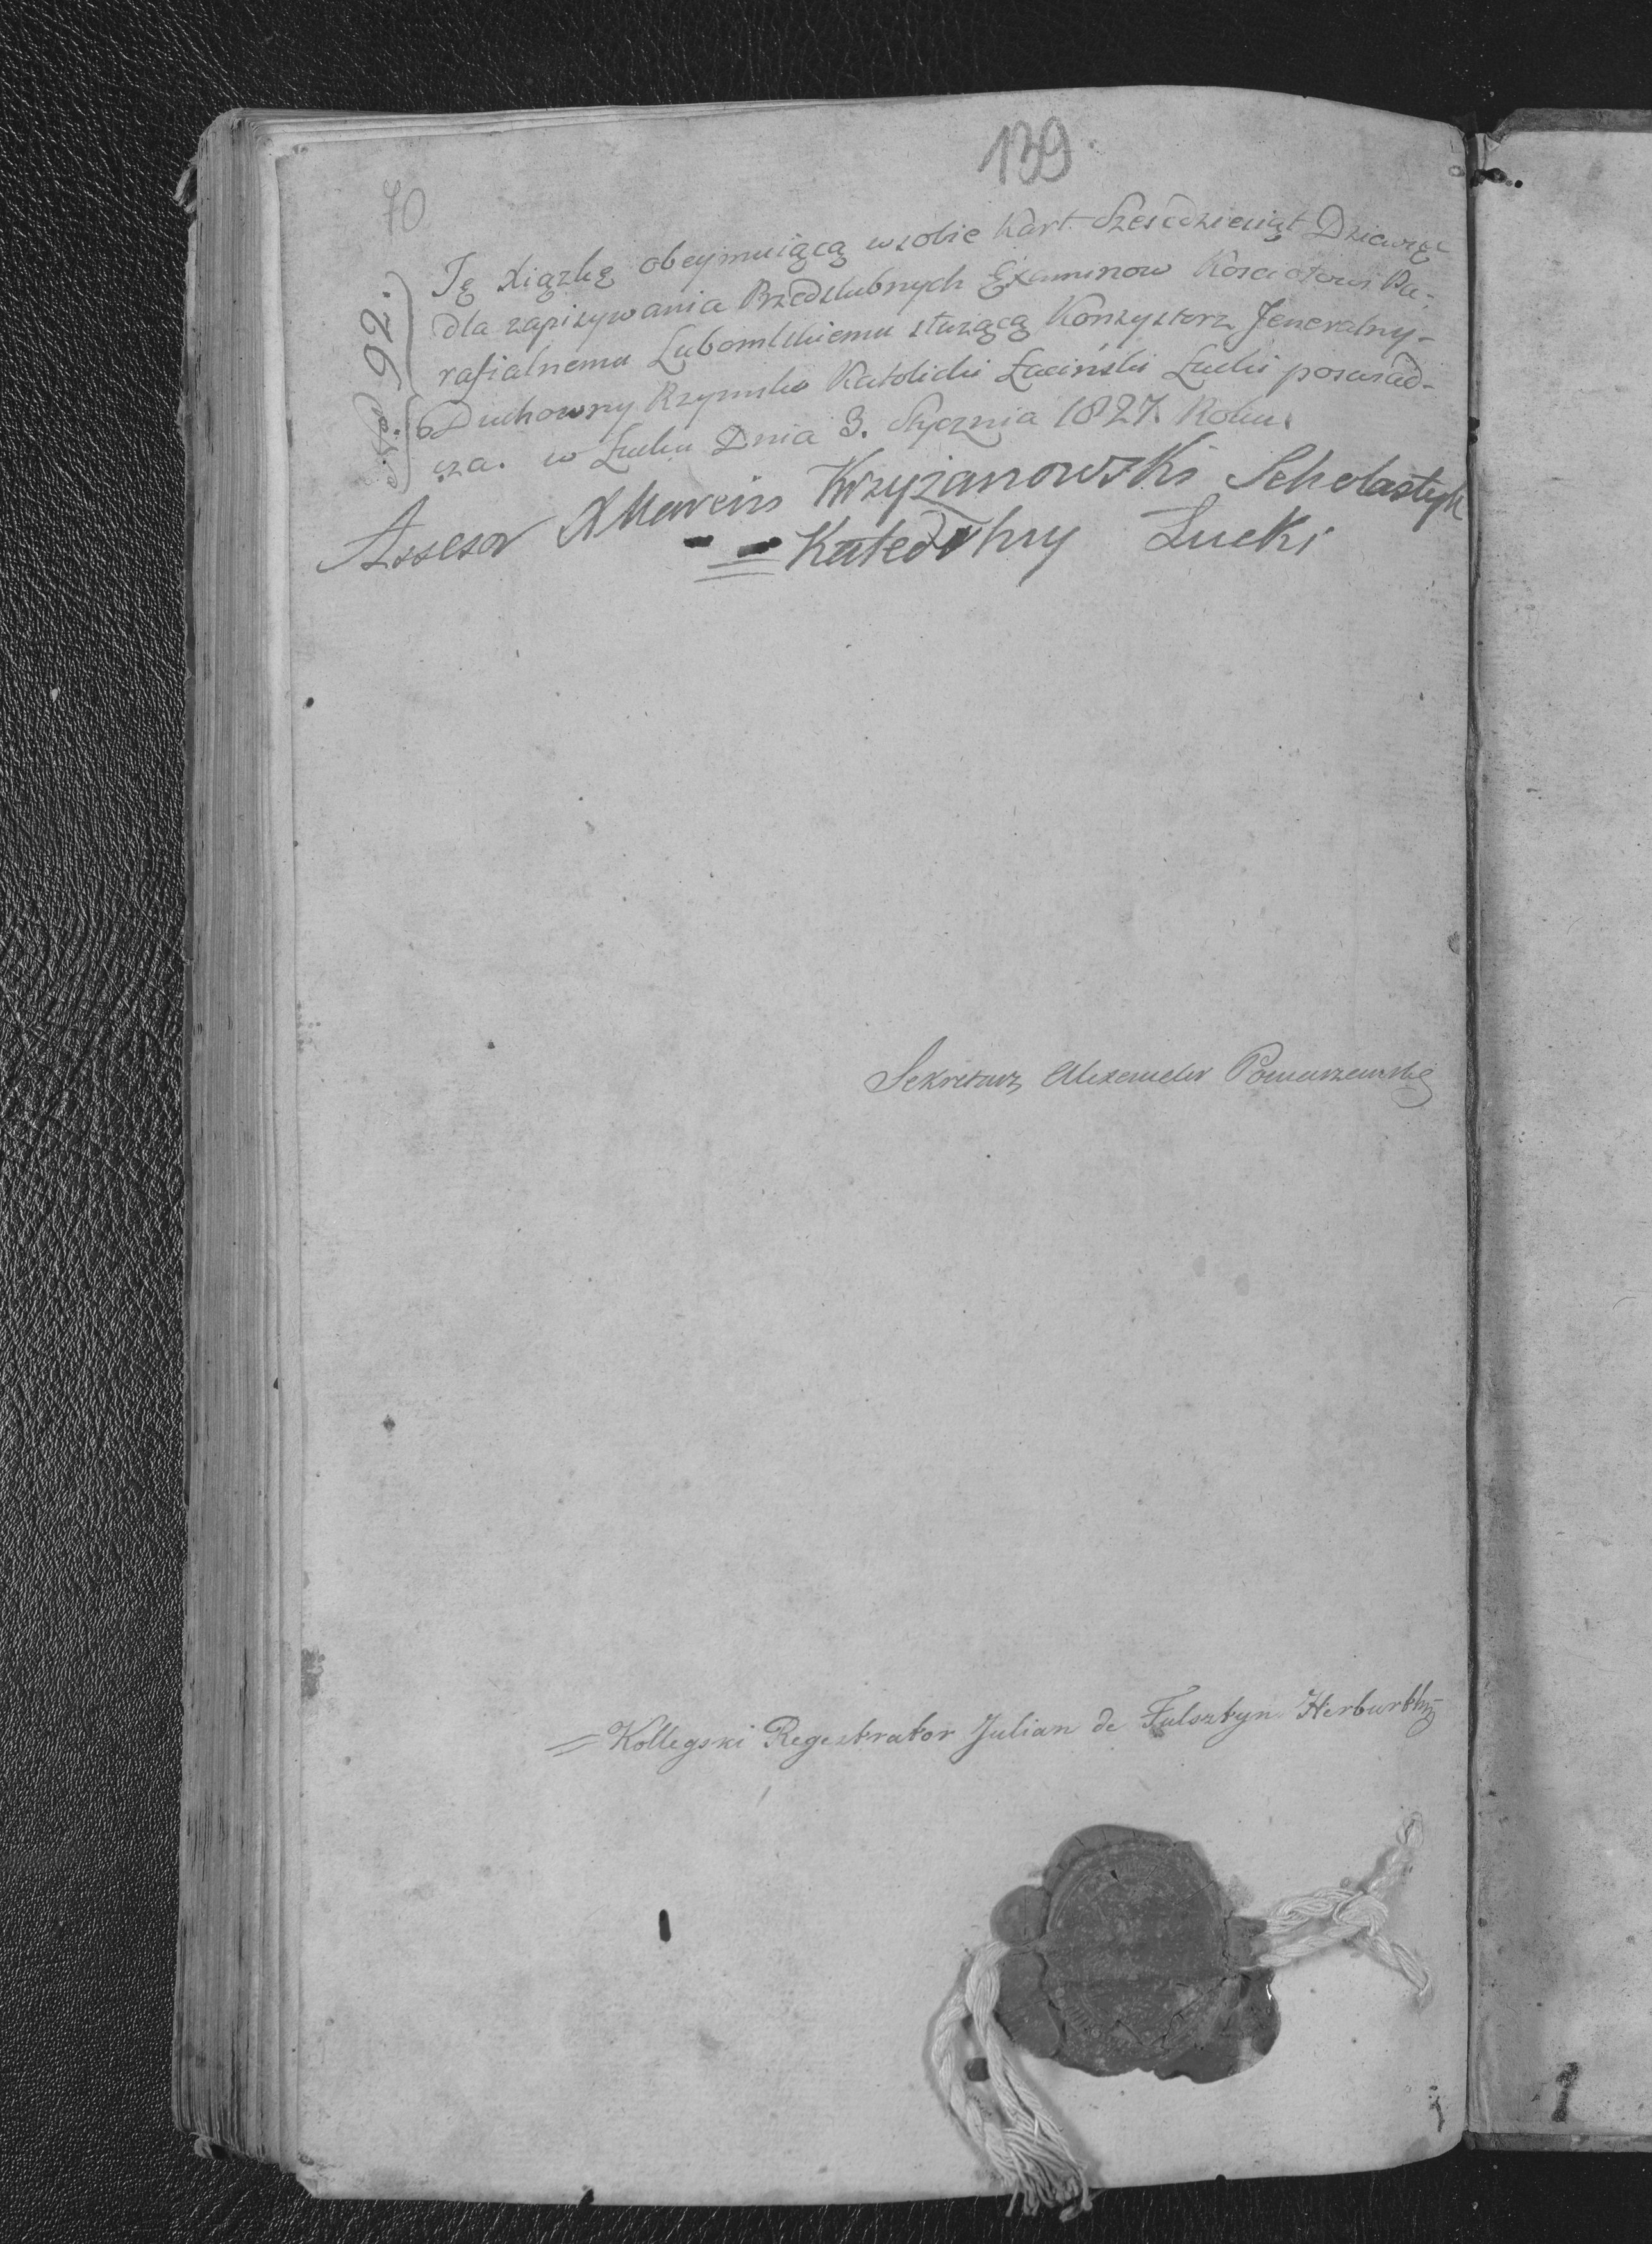 139
70
Nro 92.
Tę Xiązkę obeymuiącą w sobie Kart Szescdziesiąt Dziewięc
dla zapisywania Przedslubnych Examinow Kosciołowi Pa-
rafialnemu Lubomlskiemu słuzącą Konsystorz Jeneralny-
Duchowny Rzymsko Katolicki Łaciński Łucki poswiad-
cza. w Łucku Dnia 3. Stycznia 1827. Roku.
Assesor X Marcin Krzyzanowski Scholastyk
Katedrlny Łucki
Sekretarz Alexander Pomarzanski
= Kollegski Regestrator Julian de Fulsztyn Herburtt